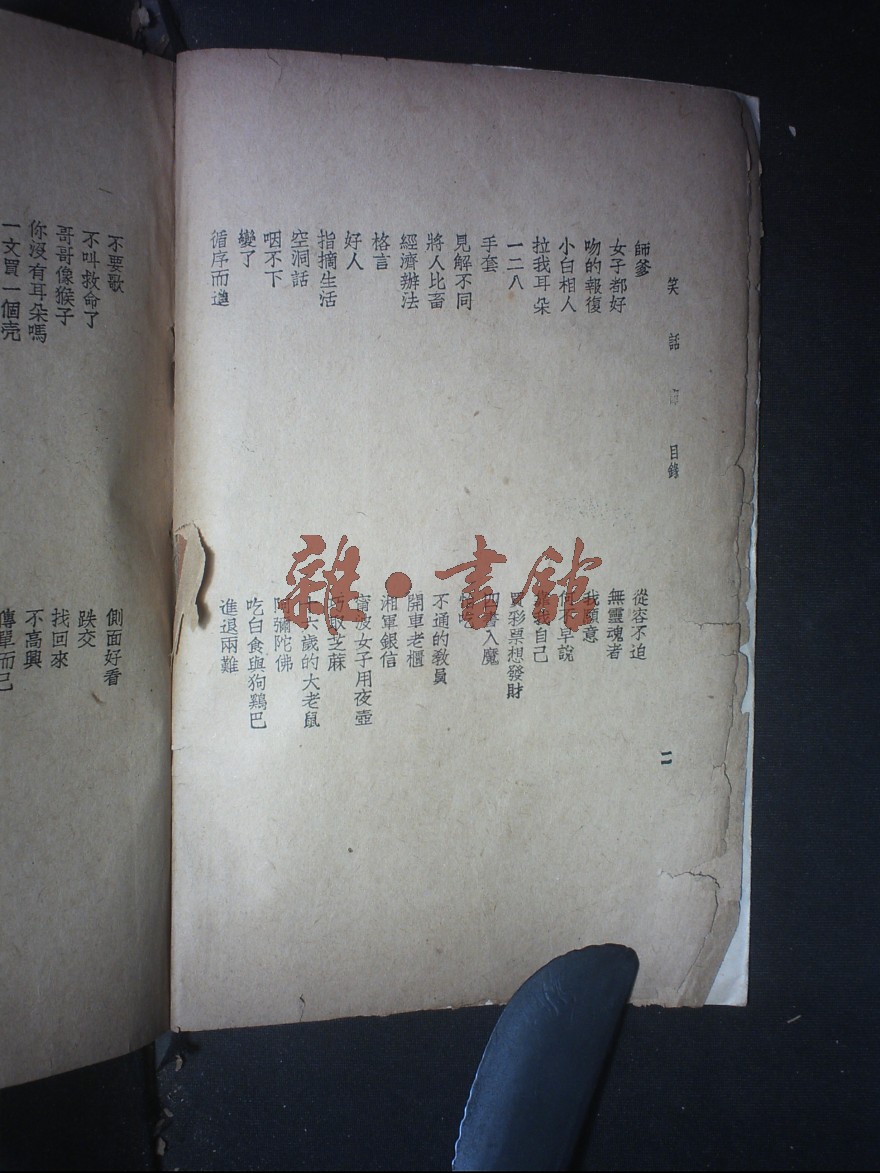 笑話 目錄
二
師爹
女子都好
吻的報復
小白相人
拉我耳朵
一二八
手套
見解不同
將人比畜
經濟辦法
格言
好人
指摘生活
空洞話
咽不下
變了
循序而進
從容不迫
無靈魂者
我願意
何不早說
我自己
買彩票想發財
四書入魔
吃
不通的教員
開車老櫃
湘軍銀信
甯波女子用夜壺
芝麻
六歲的大老鼠
阿彌陀佛
吃白食與狗鷄巴
進退兩難
不要歌
不叫救命了
哥哥像猴子
你沒有耳朵嗎
一文買一個壳
側面好看
跌交
找回來
不高興
傳單而已
雜·書館